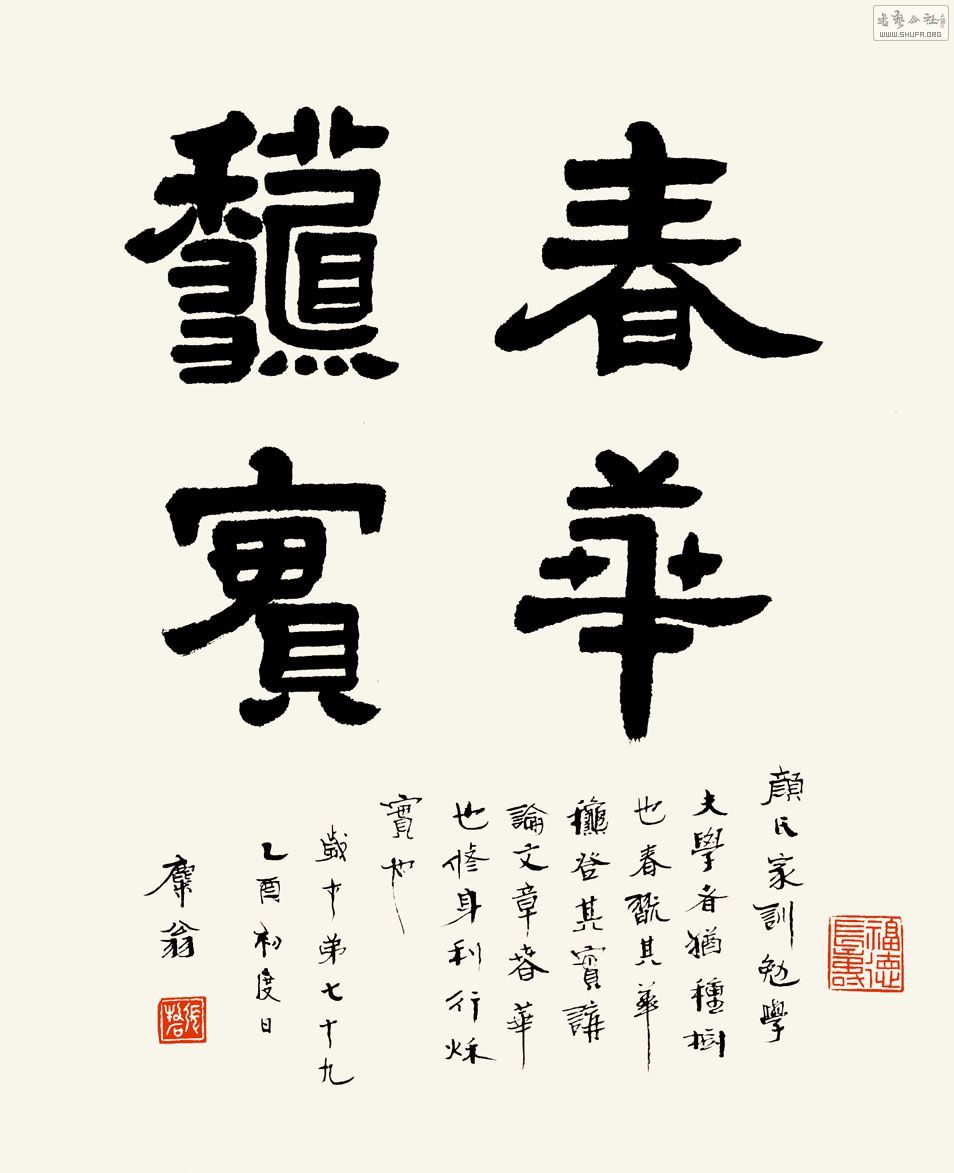 書藝公社
WWW.SHUFA.ORG
春華
龝實
顏氏家訓勉學
夫學者猶種樹
也春翫其華
龝登其實講
論文章春華
也修身利行秌
實也
歲才弟七十九
乙酉初度日
麋翁
福德長壽